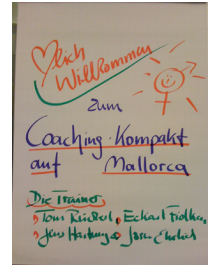 ♥lich
Willkommen
zum
Coaching · Kompakt
auf Mallorca
Die Trainer
Tom Eckart
Jens Jörn Ehrlich